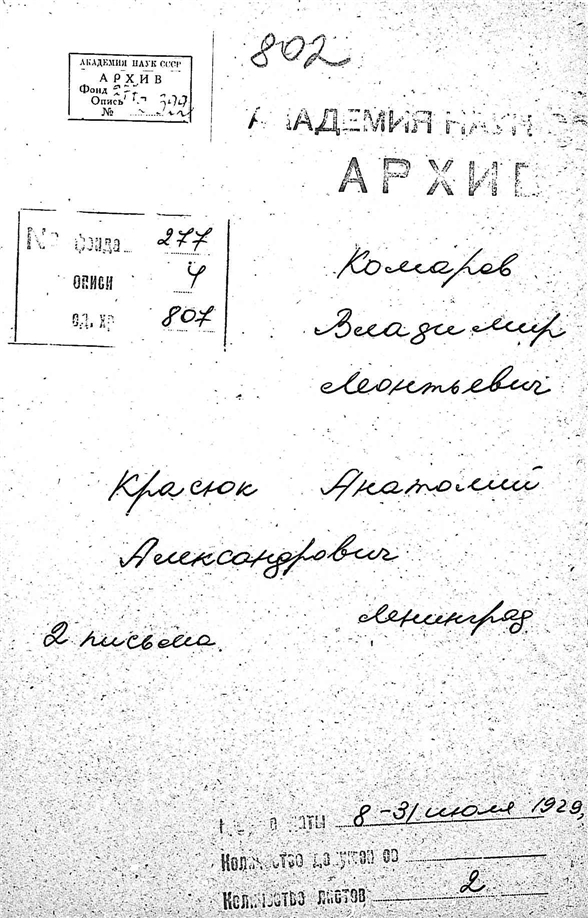 802
АКАДЕМИЯ НАУК СССР
АРХИВ
Фонд
Опись
№
АКАДЕМИЯ НАУК
АРХИВ
№ фонда 277
описи 4
ед. хр 807
Комаров
Владимир
Леонтьевич
Красюк Анатолий
Александрович
Ленинград
2 письма.
даты 8-31 июля 1929,
Количество документов
Количество листов 2